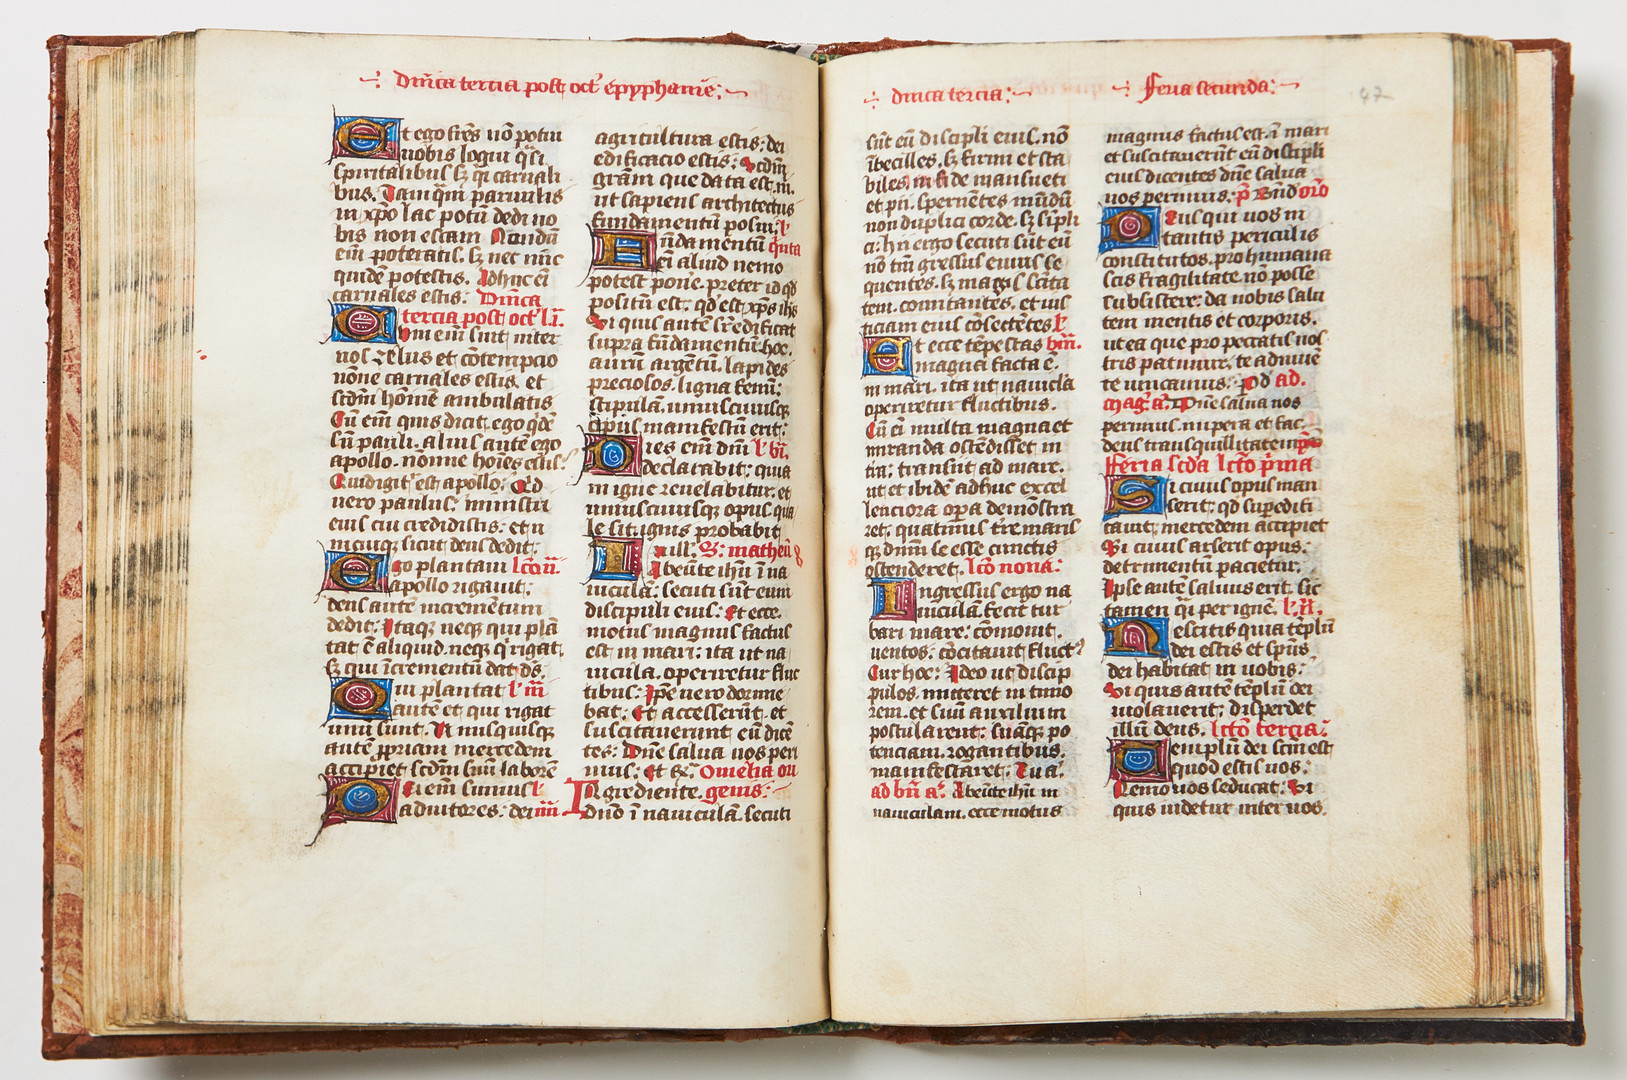 Dnīca tercia post oct epyphanie
Et ego frēs nō potui
uobis loqui q̄si
spiritalibus sꝫ q̄i carnali
bus. Tamq̄m paruulis
in xp̄o lac potū dedi uo
bis non escam Nondū
em̄ poteratis. sꝫ nec nūc
quidē potestis. Adhuc em̄
carnales estis. Dnīca
tercia post oct l̄ i.
Cum em̄ sint inter
uos zelus et cōtempcio
nōne carnales estis. et
scdm̄ homīe ambulatis
Cū em̄ quis dicit. ego qdē
sū pauli. alius autē ego
apollo. nōnne hoīes estis.
Quid igit̉ est apollo; Qd
uero paulus; ministri
eius cui credidistis; et u
nicuiqꝫ sicut deus dedit;
Ego plantaui lcō ii.
apollo rigauit;
deus autē incrementum
dedit; Itaqꝫ neqꝫ qui plā
tat ē aliquid. neqꝫ q̄ rigat.
sꝫ qui īcrementū dat ds̄.
Qui plantat l̄ iii
autē et qui rigat
unū sunt. Unusquisqꝫ
autē ꝓpriam mercedem
accipiet scdm̄ suū laborē
Dei em̄ sumus l̄
adiutores; dei iiii.
agricultura estis; dei
edificacio estis; Scdm̄
grām que data est m̄.
ut sapiens architectus
fundamentū posui; l̄
Fūdamentū quīta
em̄ aliud nemo
potest pone. preter id qd
positū est; qd est xp̄s ihs
Si quis autē sr̄edificat
supra fūdamentū hoc.
aurū argētū. lapides
preciosos. ligna fenū;
stipulā. uniuscuiusqꝫ
opus manifestū erit;
Dies em̄ dnī l̄ vi.
declarabit; quia
in igne reuelabitur. et
uniuscuiusqꝫ opus qua
le sit ignis probabit
In ill. S. matheū
Ascēnte ihū ī na
uiculā; secuti sūt eum
discipuli eius; Et ecce
motus magnus factus
est in mari; ita ut na
uicula. operiretur fluc
tibus; Ipse uero dormie
bat; Et accesserūt. et
suscitauerunt eū dicē
tes; Dnē salua nos peri
mus; Et rꝫ. Omelia ori
Ingrediente genis;
Dnō ī nauiculā. secuti
dnica tercia; Feria secunda;
47
sūt eū discipli eius. nō
ībecilles. sꝫ firmi et sta
biles in fide mansueti
et pii. spernētes mūdū
non duplici corde. sꝫ sīpli
ci; hii ergo secuti sūt eū
nō tm̄ gressus eius se
quentes. sꝫ magis scīta
tem comitantes. et ius
ticiam eius cōsectētes l̄
Et ecce tēpestas viii.
magna facta ē.
in mari. ita ut nauicla
operiretur fluctibus.
Cū em̄ multa magna et
miranda ostēdisset in
tra; transiit ad mare.
ut et ibidē adhuc excel
lenciora opa demōstra
ret; quatinus tre maris
qꝫ dnm̄ se esse cunctis
ostenderet. lcō nona;
Ingressus ergo na
uiculā. fecit tur
bari mare; cōmouit.
uentos; cōcitauit fluct9
Cur hoc; Ideo ut discip
pulos. mitteret in timo
rem. et suū auxilium
postularent; suāqꝫ po
tenciam. rogantibus.
manifestaret; Tu a.
ad bn̄ a. Ascēnte ihū in
nauiculam. ecce motus
magnus factus est ī mari
et suscitauerūt eū discipli
eius dicentes dnē salua
nos perimus; p̄ Bnd oro
Deus qui nos in
tantis periculis
constitutos. pro humana
scis fragilitate. nō posse
subsistere; da nobis salu
tem mentis et corporis.
ut ea que pro peccatis nos
tris patimur. te adiuuē
te uincamus; pd ad.
mag a. Dnē salua nos
perimus. impera et fac.
deus tranquillitatem
Feria scda lctō prīma
Si cuius opus man
serit; qd supedifi
cauit; mercedem accipiet
Si cuius arserit opus;
detrimentū pacietur.
Ipse autē saluus erit. sic
tamen q̄i per ignē. l̄. ii.
Nescitis quia tēplū
dei estis et sp̄us
dei habitat in uobis;
Si quis autē tēplū dei
uiolauerit; disperdet
illū deus. lctō tercia;
Templū dei scm̄ est
quod estis uos;
Nemo uos seducat; Si
quis uidetur inter uos.